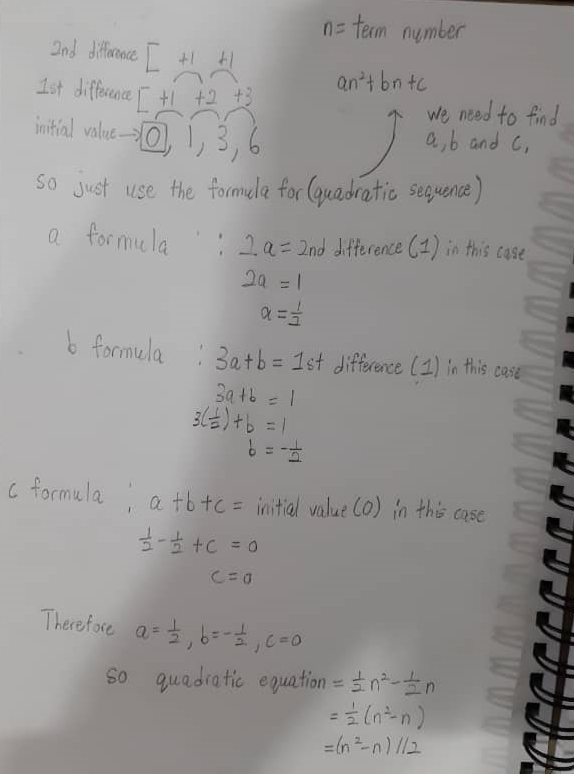 n= term number
2nd difference [ +1 +1
1st difference [ +1 +2 +3
an²+bn+c
initial value → 0, 1, 3, 6
we need to find
a,b and c,
so just use the formula for (quadratic sequence)
a formula : 2a = 2nd difference (1) in this case
2a = 1
a = 1/2
b formula : 3a+b = 1st difference (1) in this case
3a+b = 1
3(1/2)+b = 1
b = -1/2
c formula : a+b+c = initial value (0) in this case
1/2 - 1/2 + c = 0
c = 0
Therefore a = 1/2, b = -1/2, c=0
so quadratic equation = 1/2 n² - 1/2 n
= 1/2 (n²-n)
= (n²-n)//2